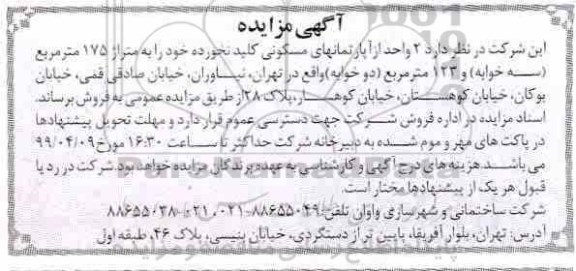 آگهی مزایده
این شرکت در نظر دارد ۲ واحد از آپارتمانهای مسکونی کلید نخورده خود را به متراژ ۱۷۵ مترمربع
(سه خوابه) و ۱۲۳ مترمربع (دو خوابه) واقع در تهران، نیاوران، خیابان صادقی قمی، خیابان
بوکان، خیابان کوهستان، خیابان کوهسار، پلاک ۲۸ از طریق مزایده عمومی به فروش برساند.
اسناد مزایده در اداره فروش شرکت جهت دسترسی عموم قرار دارد و مهلت تحویل پیشنهادها
در پاکت های مهر و موم شده به دبیرخانه شرکت حداکثر تا ساعت ۱۶:۳۰ مورخ ۹۹/۰۴/۰۹
می باشد. هزینه های درج آگهی و کارشناسی به عهده برندگان مزایده خواهد بود. شرکت در رد یا
قبول هر یک از پیشنهادها مختار است.
شرکت ساختمانی و شهرسازی واوان تلفن: ۸۸۶۵۵۰۴۹-۰۲۱ ، ۰۲۱-۸۸۶۵۵۰۳۸
آدرس: تهران، بلوار آفریقا، پایین تر از دستگردی، خیابان پنیسی، پلاک ۴۶، طبقه اول